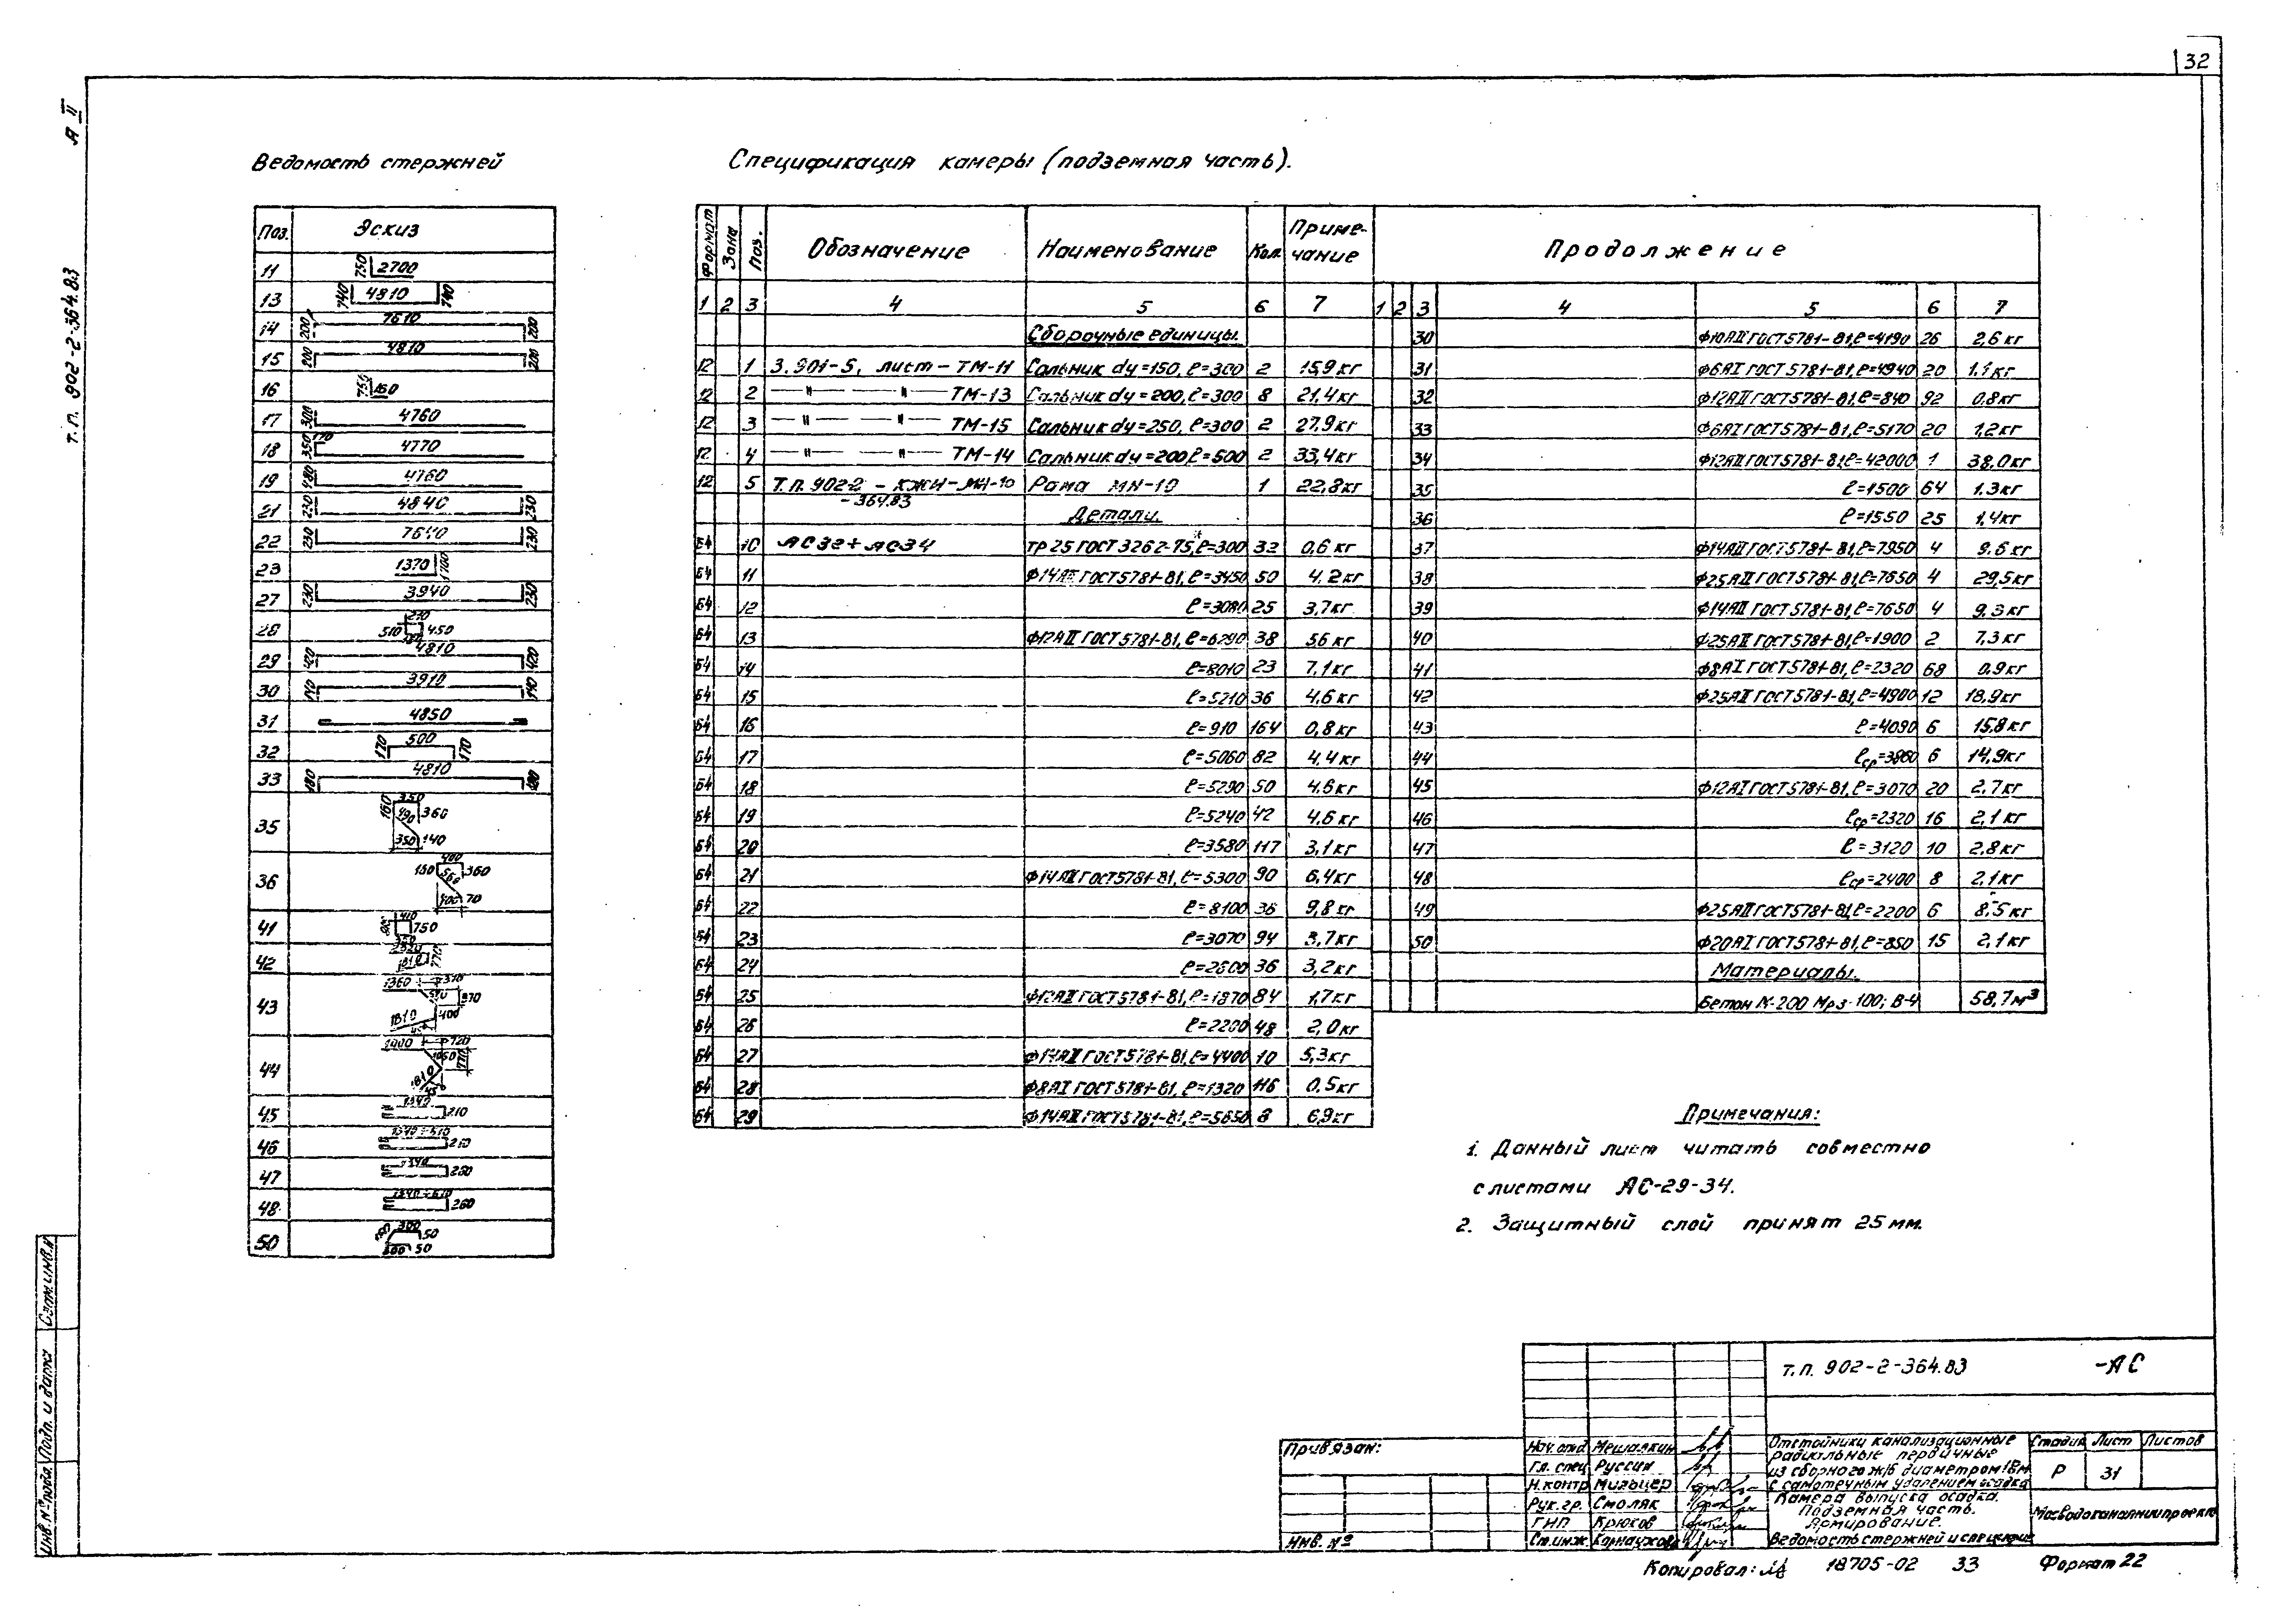 32
А II
т.п. 902-2-364.83
Ведомость стержней
Поз. Эскиз
11 750 2700
13 740 4810 740
14 200 7610 200
15 200 4810 200
16 750 160
17 300 4760
18 350 170 4770
19 480 4760
21 230 4840 230
22 230 7640 230
23 1370 1700
27 230 3940 230
28 210 510 450
29 420 4810 420
30 140 3910 140
31 4850
32 170 500 170
33 180 4810 180
35 160 350 490 360 350 140
36 400 150 560 360 400 70
41 410 750 350
42 2320 1810 770
43 1360 370 510 370 1810 400
44 1400 720 1050 1810
45 1340 210
46 1340÷610 210
47 1340 260
48 1340÷610 260
50 300 50 200 50
Спецификация камеры (подземная часть).
Формат Зона Поз. Обозначение Наименование Кол. Приме-чание
1 2 3 4 5 6 7
Сборочные единицы.
12 1 3.901-5, лист - ТМ-11 Сальник dу=150, ℓ=300 2 15,9кг
12 2 — " — — " — ТМ-13 Сальник dу=200, ℓ=300 8 21,4кг
12 3 — " — — " — ТМ-15 Сальник dу=250, ℓ=300 2 27,9кг
12 4 — " — — " — ТМ-14 Сальник dу=200 ℓ=500 2 33,4кг
12 5 Т.п. 902-2 - КЖИ-МН-10 Рама МН-10 1 22,8кг
-364.83
Детали.
Б4 10 АС32+АС34 ТР 25 ГОСТ 3262-75*, ℓ=300 32 0,6 кг
Б4 11 Ф14АII ГОСТ 5781-81, ℓ=3450 50 4,2кг
Б4 12 ℓ=3080 25 3,7кг
Б4 13 Ф12АII ГОСТ 5781-81, ℓ=6290 38 5,6 кг
Б4 14 ℓ=8010 23 7,1кг
Б4 15 ℓ=5210 36 4,6 кг
Б4 16 ℓ=910 164 0,8 кг
Б4 17 ℓ=5060 82 4,4кг
Б4 18 ℓ=5290 50 4,6кг
Б4 19 ℓ=5240 42 4,6 кг
Б4 20 ℓ=3580 117 3,1кг
Б4 21 Ф14АII ГОСТ 5781-81, ℓ=5300 90 6,4кг
Б4 22 ℓ=8100 36 9,8 кг
Б4 23 ℓ=3070 94 3,7кг
Б4 24 ℓ=2600 36 3,2кг
Б4 25 Ф12АII ГОСТ 5781-81, ℓ=1870 84 1,7кг
Б4 26 ℓ=2200 48 2,0кг
Б4 27 Ф14АII ГОСТ 5781-81, ℓ=4400 10 5,3кг
Б4 28 Ф8АI ГОСТ 5781-81, ℓ=1320 116 0,5кг
Б4 29 Ф14АII ГОСТ 5781-81, ℓ=5650 8 6,9кг
Продолжение
1 2 3 4 5 6 7
30 Ф10АII ГОСТ 5781-81, ℓ=4190 26 2,6 кг
31 Ф6АI ГОСТ 5781-81, ℓ=4940 20 1,1кг
32 Ф12АII ГОСТ 5781-81, ℓ=840 92 0,8кг
33 Ф6АI ГОСТ 5781-81, ℓ=5170 20 1,2кг
34 Ф12АII ГОСТ 5781-81, ℓ=42000 1 38,0кг
35 ℓ=1500 64 1,3кг
36 ℓ=1550 25 1,4кг
37 Ф14АII ГОСТ 5781-81, ℓ=7950 4 9,6 кг
38 Ф25АII ГОСТ 5781-81, ℓ=7650 4 29,5кг
39 Ф14АII ГОСТ 5781-81, ℓ=7650 4 9,3кг
40 Ф25АII ГОСТ 5781-81, ℓ=1900 2 7,3 кг
41 Ф8АI ГОСТ 5781-81, ℓ=2320 68 0,9кг
42 Ф25АII ГОСТ 5781-81, ℓ=4900 12 18,9кг
43 ℓ=4090 6 15,8кг
44 ℓср=3860 6 14,9кг
45 Ф12АI ГОСТ 5781-81, ℓ=3070 20 2,7кг
46 ℓср=2320 16 2,1 кг
47 ℓ=3120 10 2,8кг
48 ℓср=2400 8 2,1кг
49 Ф25АII ГОСТ 5781-81, ℓ=2200 6 8,5кг
50 Ф20АI ГОСТ 5781-81, ℓ=850 15 2,1кг
Материалы.
Бетон М-200 Мрз-100; В-4 58,7м³
Примечания:
1. Данный лист читать совместно
с листами АС-29-34.
2. Защитный слой принят 25 мм.
т.п. 902-2-364.83 -АС
Привязан:
Инв. №
Нач. отд Мешалкин
Гл. спец Руссин
Н.контр Мильцер
Рук. гр. Смоляк
ГИП Крюков
Ст.инж. Карнаухова
Отстойники канализационные
радиальные первичные
из сборного ж/б диаметром 18м
с самотечным удалением осадка
Камера выпуска осадка.
Подземная часть.
Армирование.
Ведомость стержней и специфик.
Стадия Лист Листов
Р 31
Мосводоканалниипроект
Копировал: 18705-02 33 Формат 22
Инв. № подл. Подп. и дата Взам.инв.№